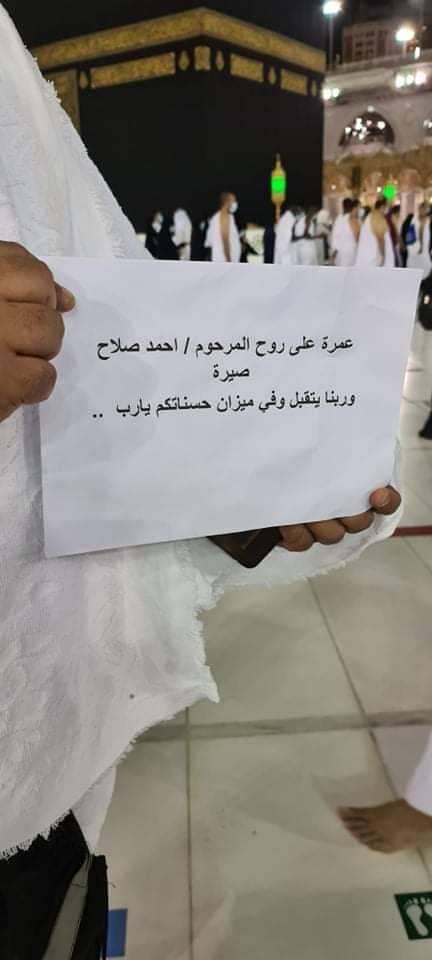 عمرة على روح المرحوم / احمد صلاح
صيرة
وربنا يتقبل وفي ميزان حسناتكم يارب ..